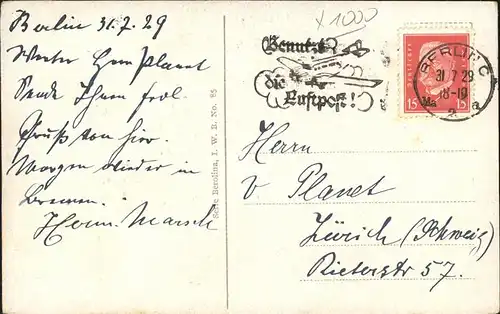 Berlin 31.7.29
Werter Herr Planet
Sende Ihnen frdl.
Gruß von hier.
Morgen wieder in
Bremen.
Herm. Marsch
Serie Berolina, I. W. B. No. 85
x 1000
Benutzt
die
Luftpost!
BERLIN C
31.7.29
18-19
2 a
15 15
Herrn
V Planet
Zürich (Schweiz)
Rieterstr 57.